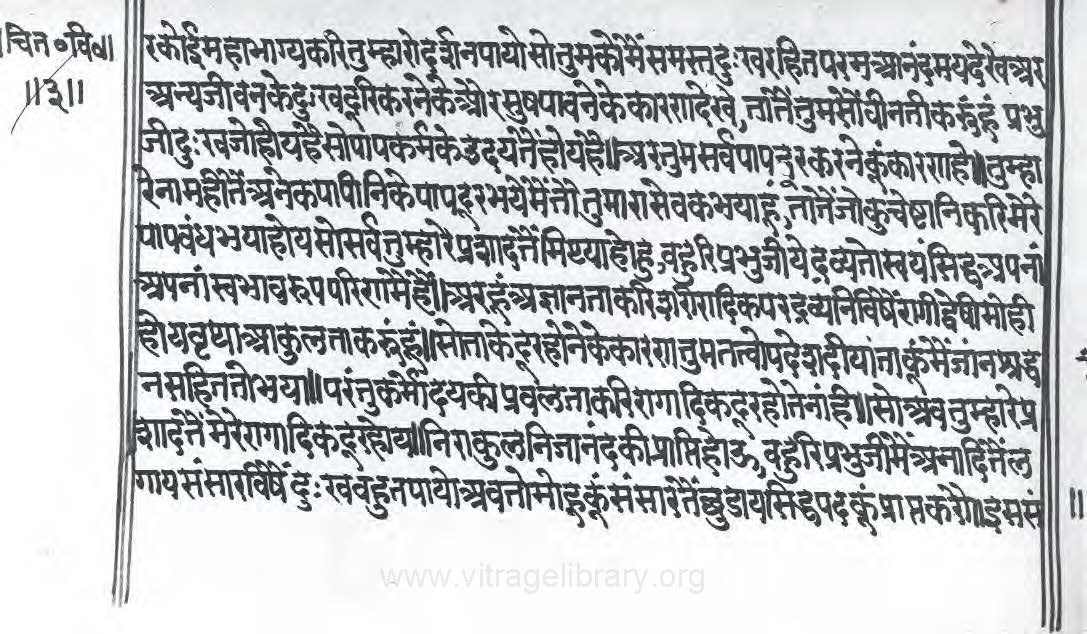 चित॰वि॰॥
॥३॥
रकोईमहाभाग्यकरितुम्हारोदर्शनपायोसोतुमकोमैंसमस्तदुःखरहितपरमआनंदमयदेखेअर
अन्यजीवनकेदुःखदूरिकरनेकेऔरसुषपावनेकेकारणदेखे,तातैंतुमसोंवीनतीकरूंहूं प्रभु
जीदुःखजोहैयहैसोपापकर्मकेउदयतेंहोयहै॥अरतुमसर्वपापदूरकरनेकूंकारणहै॥तुम्हा
रेनामहीतैंअनेकपापीनिकेपापदूरभयेमैंतोतुमारासेवकभयाहूं,तातैंजोकुचेष्टानिकरिमेरे
पापवंधभयाहोयसोसर्वतुम्हारेप्रशादतेंमिथ्याहोहु,वहुरिप्रभुजीयेद्रव्यतोस्वयंसिद्धअपनां
अपनांस्वभावरुपपरिणमेंहै॥अरहूंअज्ञानताकरिशरीरादिकपरद्रव्यनिविषैंरागीद्वेषीमोही
होयवृथाआकुलताकरूंहूं॥सोताकेदूरहोनेकेकारणतुमतत्वोपदेशदीयांताकूंमैंजांनश्रद्ध
नसहिततोभया॥परंतुकर्मोदयकीप्रवलताकरिरागादिकदूरहोतेनांही॥सोअवतुम्हारेप्र
शादतेंमेरेरागादिकदूरहोय॥निराकुलनिजानंदकीप्राप्तिहोऊ,वहुरिप्रभुजीमैंअनादितैंल
गायसंसारविषैंदुःखवहुतपायोअवतोमोहूकूंसंसारतैंछुडायसिद्धपदकूंप्राप्तकरो॥इमसं
॥
www.vitragelibrary.org